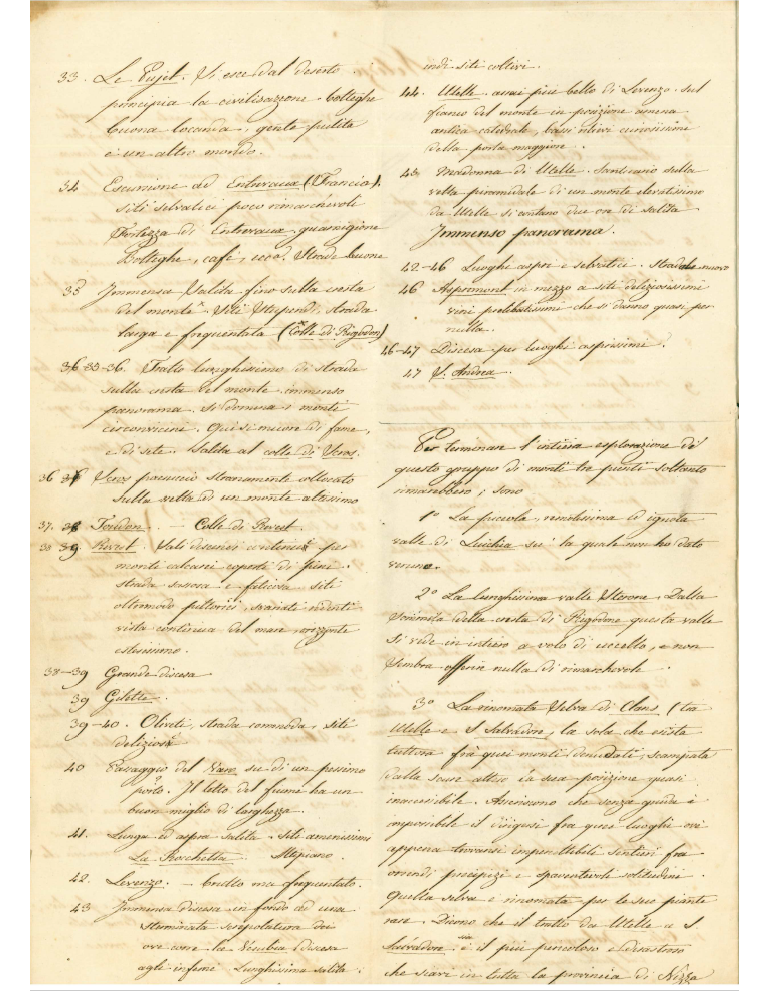 33. Le Pujet. Si esce dal deserto.
principia la civilizzazione botteghe
buona locanda, gente pulita
è un altro mondo.
34 Escursione ad Entrevaux (Francia).
siti selvatici poco rimarchevoli
Fortezza di Entrevaux, guarnigione
Botteghe, café, ecc. Strade buone
35 Immensa Salita fino sulla cresta
del monte. Siti Stupendi, strada
larga e frequentata (Colle di Rigodon)
36-35-36. Tratto lunghissimo di strada
sulla cresta del monte immenso
panorama. Si domina i monti
circonvicini. Qui si muore di fame,
e di sete. Salita al colle di Veros.
36 Veros paesuccio stranamente collocato
sulla vetta di un monte altissimo
37. 38 Toudon. — Colle di Revest.
38 39 Revest. Sali discesi continui per
monti calcarei coperti di pini.
strada sassosa e faticosa siti
oltremodo pittorici, svariati ridenti
vista continua del mare, orizzonte
estesissimo.
38-39 Grande discesa
39 Gelette.
39-40. Oliveti, strada commoda, siti
deliziosi
40 Passaggio del Varo su di un pessimo
porto. Il letto del fiume ha un
buon miglio di larghezza.
41. Lunga ed aspra salita. Siti amenissimi
La Rochetta
42. Levenzo. — brutto ma frequentato.
43 Immensa discesa in fondo ad una
sterminata screpolatura dai
ove corre la Vesubia (discesa
agli inferni Lunghissima salita.
indi siti coltivi.
44. Utelle. assai più bello di Levenzo. sul
fianco del monte in posizione amena
antica catedrale, bassi rilievi curiosissimi
della porta maggiore.
45 Madonna di Utelle. Santuario sulla
vetta piramidale di un monte elevatissimo
da Utelle si contano due ore di salita
Immenso panorama.
42-46 Luoghi aspri e selvatici. Strada nuova
46 Aspromont in mezzo a siti deliziosissimi
vini prelibatissimi che si danno quasi per
nulla.
46-47 Discesa per luoghi asprissimi.
47 S. Andrea.
Per terminare l'intiera esplorazione di
questo gruppo di monti tre punti soltanto
rimarebbero; sono
1º La piccola, remotissima ed ignota
valle di su la quale non ho dato
veruno.
2º La lunghissima valle Sterone. Dalla
Sommità della cresta di Rigodone questa valle
si vede in intiero a volo di uccello, e non
Sembra offrire nulla di rimarchevole.
3º La rinomata Selva di Clans, (tra
Utelle e S. Salvadore, la sola che esista
tuttora frà quei monti denudati, scampata
dalle scuse altrio la sua posizione quasi
inaccessibile. Asseriscono che senza guida è
impossibile il dirigersi fra quei luoghi ove
appena trovansi impercettibili sentieri fra
orrendi precipizi e spaventevoli solitudini.
Quella selva è rinomata per le sue piante
rare. Dicono che il tratto da Utelle a S.
Salvadore sia il più penoloso e disastroso
che siavi in tutta la provincia di Nizza